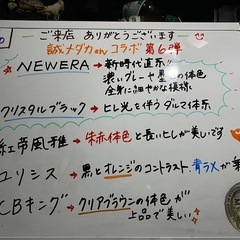 ご来店 ありがとうございます
誠メダカさん コラボ 第6弾
NEWERA → 新時代直系!!
濃いグレーや墨の体色
全身に細やかな模様
クリスタルブラック → ヒレ光を伴うダルマ体系
紅帝風雅 → 朱赤体色と長いヒレが美しいです
ユリシス → 黒とオレンジのコントラスト。青ラメが
CBキング → クリアブラウンの体色が
上品で美しい。